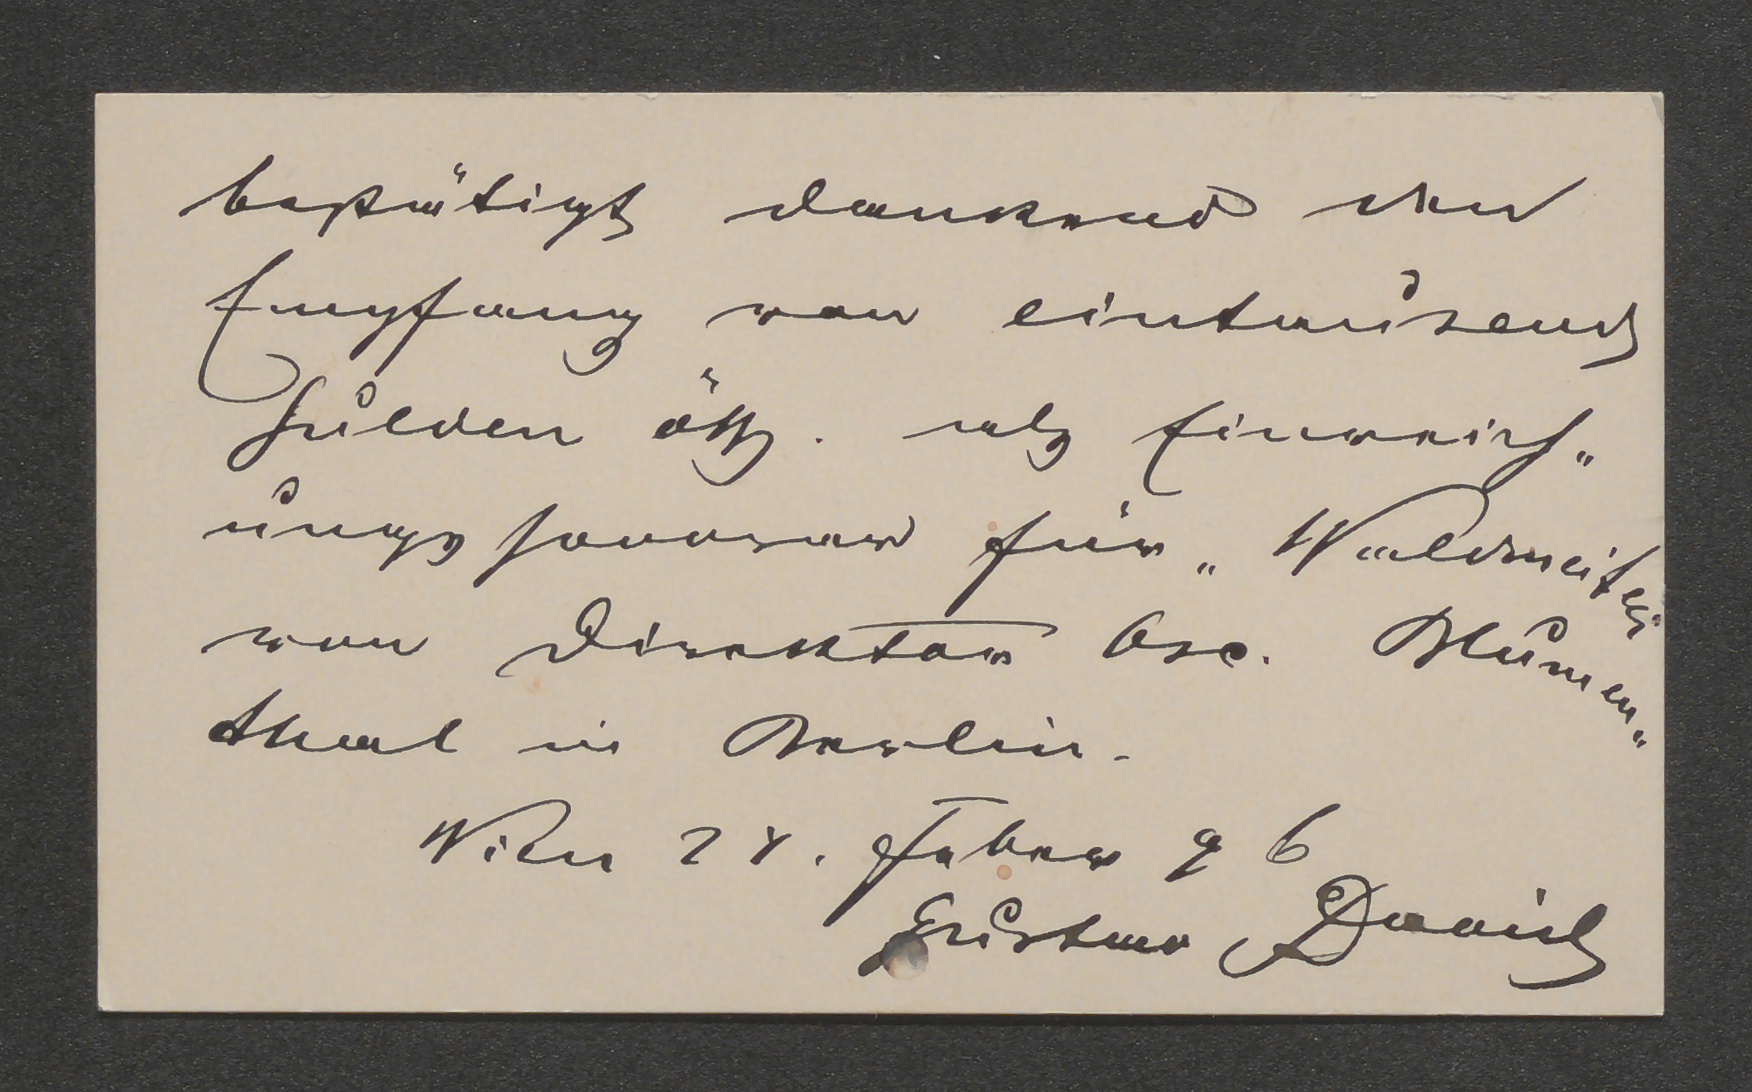 bestätigt dankend den
Empfang von eintausend
Gulden östr. als Einreich„
ungshonorar für „Waldmeister"
von Direktor Osc. Blumen„
thal in Berlin.
Wien 24. Feber 96
Gustav David